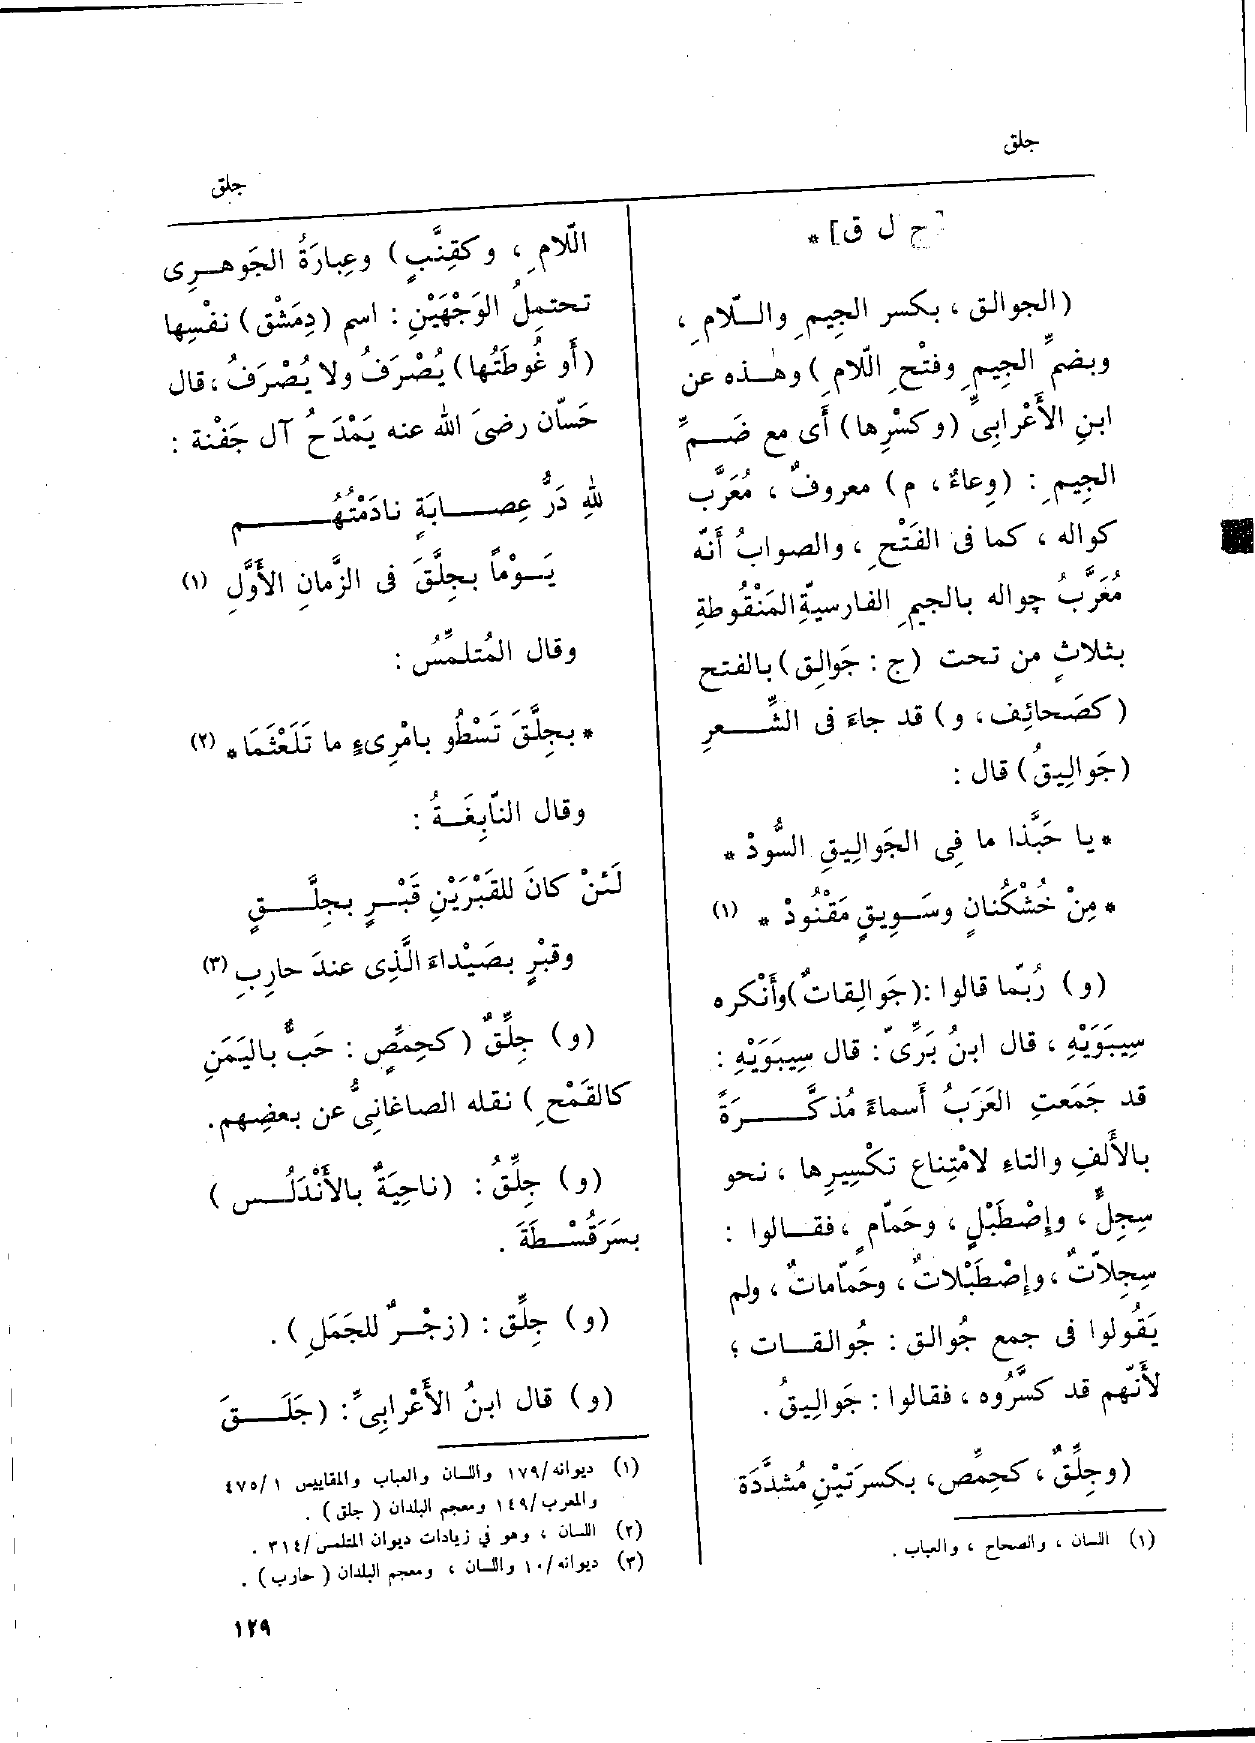 جلق
جلق
[ج ل ق] *
(الجوالق ، بكسر الجِيمِ والـلّامِ ،
وبضمِّ الجِيمِ وفتْحِ اللّامِ ) وهٰـذه عن
ابنِ الأَعْرابِىِّ (وكسْرِها) أَى مع ضَـمِّ
الجِيمِ : (وِعاءٌ ، م) معروفٌ ، مُعَرَّب
كواله ، كما فى الفَتْحِ ، والصوابُ أَنّه
مُعَرَّبُ چواله بالجيمِ الفارسيّةِ المَنْقُوطةِ
بثلاثٍ من تحت (ج : جَوالِق) بالفتح
(كصَحائِف، و) قد جاءَ فى الشِّـعرِ
(جَوالِيقُ) قال :
* يا حَبَّذا ما فِى الجَوالِيقِ السُّودْ *
* مِنْ خُشْكُنانٍ وسَـوِيقٍ مَقْنُودْ * (١)
(و) رُبّما قالوا :(جَوالِقاتٌ)وأَنْكره
سِيبَوَيْهِ ، قال ابنُ بَرِّىّ : قال سِيبَوَيْهِ :
قد جَمَعتِ العَرَبُ أَسماءً مُذكَّـرَةً
بالأَلفِ والتاءِ لامْتِناع تكْسِيرِها ، نحو
سِجِلٍّ ، وإِصْطَبْلٍ ، وحَمّامٍ ، فقـالوا :
سِجِلاّتٌ ، وإِصْطَبْلاتٌ ، وحَمّاماتٌ ، ولم
يَقُولوا فى جمع جُوالق : جُوالقـات ؛
لأَنّهم قد كسَّرُوه ، فقالوا : جَوالِيقُ .
(وجِلِّقٌ ، كحِمِّص، بكسرَتيْنِ مُشدَّدَة
(١) اللسان ، والصحاح ، والعباب .
اللّامِ ، وكقِنَّبٍ) وعِبارَةُ الجَوهـرِى
تحتمِلُ الوَجْهَيْنِ : اسم (دِمَشْق) نفْسِها
(أَو غُوطَتُها) يُصْرَفُ ولا يُصْرَفُ ، قال
حَسّان رضىَ اللّٰه عنه يَمْدَحُ آل جَفْنة :
لِلّٰهِ دَرُّ عِصـابَةٍ نادَمْتُهُـم
يَـوْماً بجِلَّقَ فى الزَّمانِ الأَوَّلِ (١)
وقال المُتلمِّسُ :
* بجِلَّقَ تَسْطُو بامْرِىءٍ ما تَلَعْثَمَا * (٢)
وقال النّابِغَـةُ :
لَئنْ كانَ للقَبْرَيْنِ قَبْـرٍ بجِلَّـقٍ
وقبْرٍ بصَيْداءَ الَّذِى عندَ حارِبِ (٣)
(و) جِلِّقٌ ( كحِمِّصٍ : حَبٌّ باليَمَنِ
كالقَمْحِ ) نقله الصاغانِىُّ عن بعضِهم.
(و) جِلِّقُ : (ناحِيَةٌ بالأَنْدَلُـس )
بسَرَقُسْـطَةَ .
(و) جِلِّق : (زجْـرٌ للجَمَلِ ) .
(و) قال ابنُ الأَعْرابِىِّ : (جَلَـقَ
(١) ديوانه/١٧٩ واللسان والعباب والمقاييس ٤٧٥/١
والمعرب/١٤٩ ومعجم البلدان ( جلق ) .
(٢) اللسان ، وهو في زيادات ديوان المتلمس/٣١٤ .
(٣) ديوانه/١٠ واللسان ، ومعجم البلدان ( حارب ) .
١٢٩